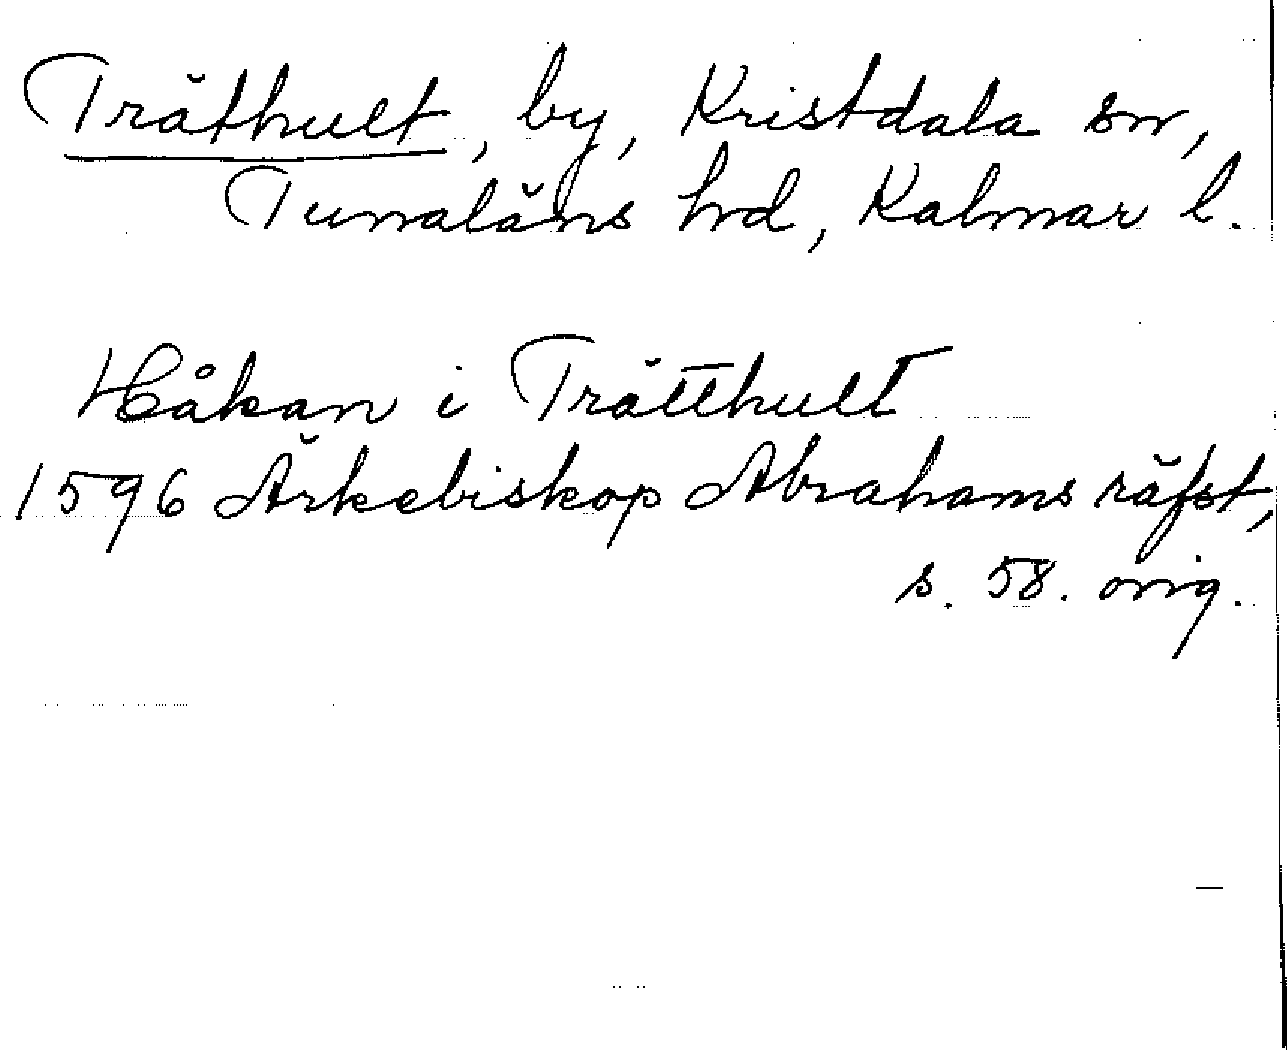 Träthult, by, Kristdala sn,
Tunaläns hd, Kalmar l.
Håkan i Trätthult
1596 Ärkebiskop Abrahams räfst,
s. 58. orig.